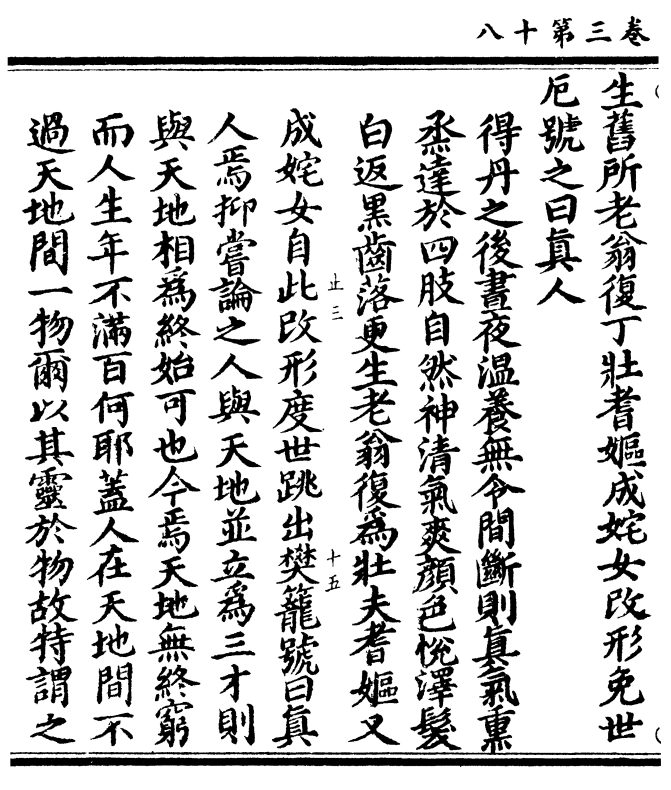 卷三第十八
生舊所老翁復丁壯耆嫗成姹女改形免世
厄號之曰眞人
得丹之後晝夜温養無令間斷則眞氣熏
烝達於四肢自然神清氣爽顔色悅澤髮
白返黒齒落更生老翁復爲壯夫耆嫗又
止三
十五
成姹女自此改形度世跳出樊籠號曰眞
人焉抑嘗論之人與天地並立爲三才則
與天地相爲終始可也今焉天地無終窮
而人生年不滿百何耶蓋人在天地間不
過天地間一物爾以其靈於物故特謂之